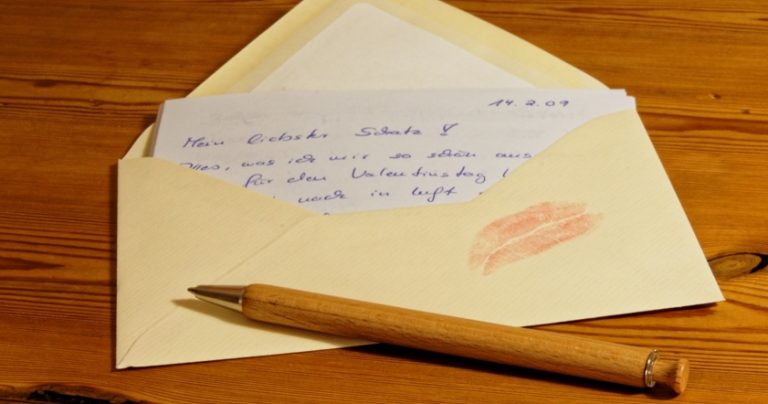 14.2.09
Mein liebster Schatz!
Alles, was ich mir so schön aus
für den Valentinstag
nach in Luft